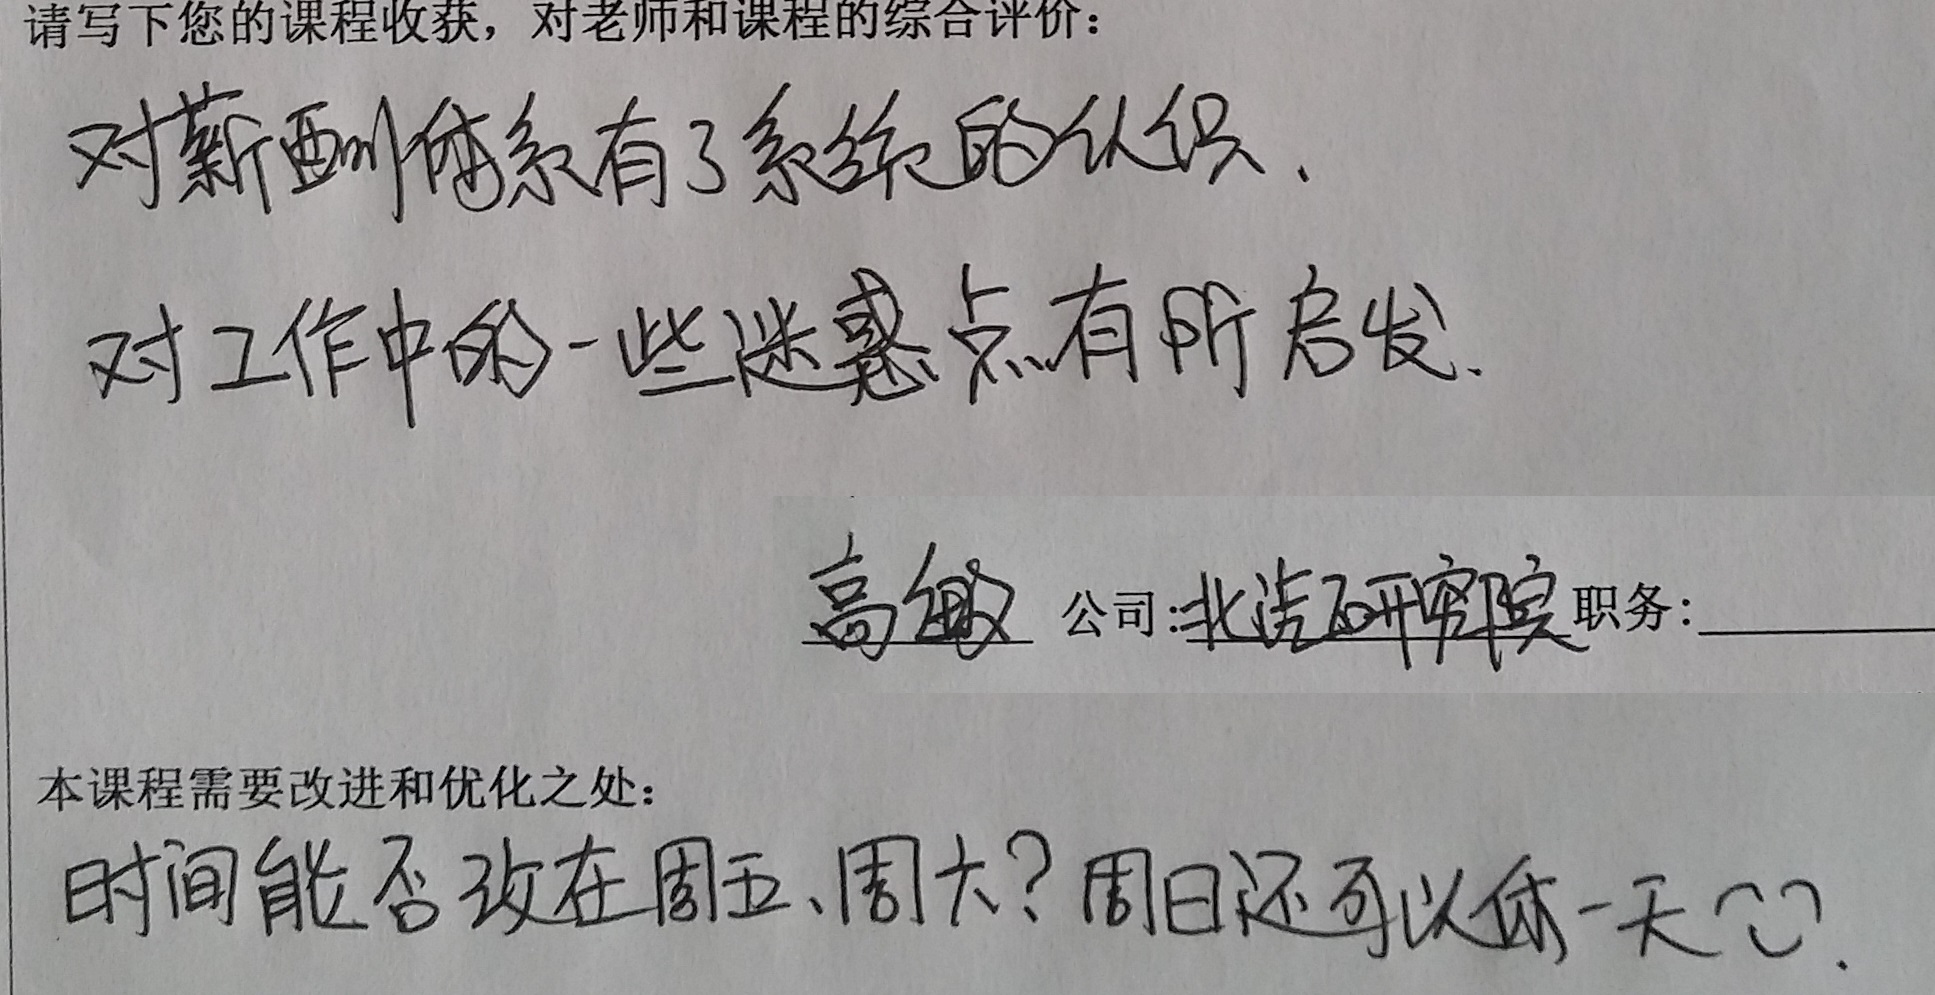 请写下您的课程收获，对老师和课程的综合评价：
对薪酬体系有了系统的认识、
对工作中的一些迷惑点有所启发.
高敏 公司:北汽研究院 职务:
本课程需要改进和优化之处：
时间能否改在周五、周六？周日还可以休一天.